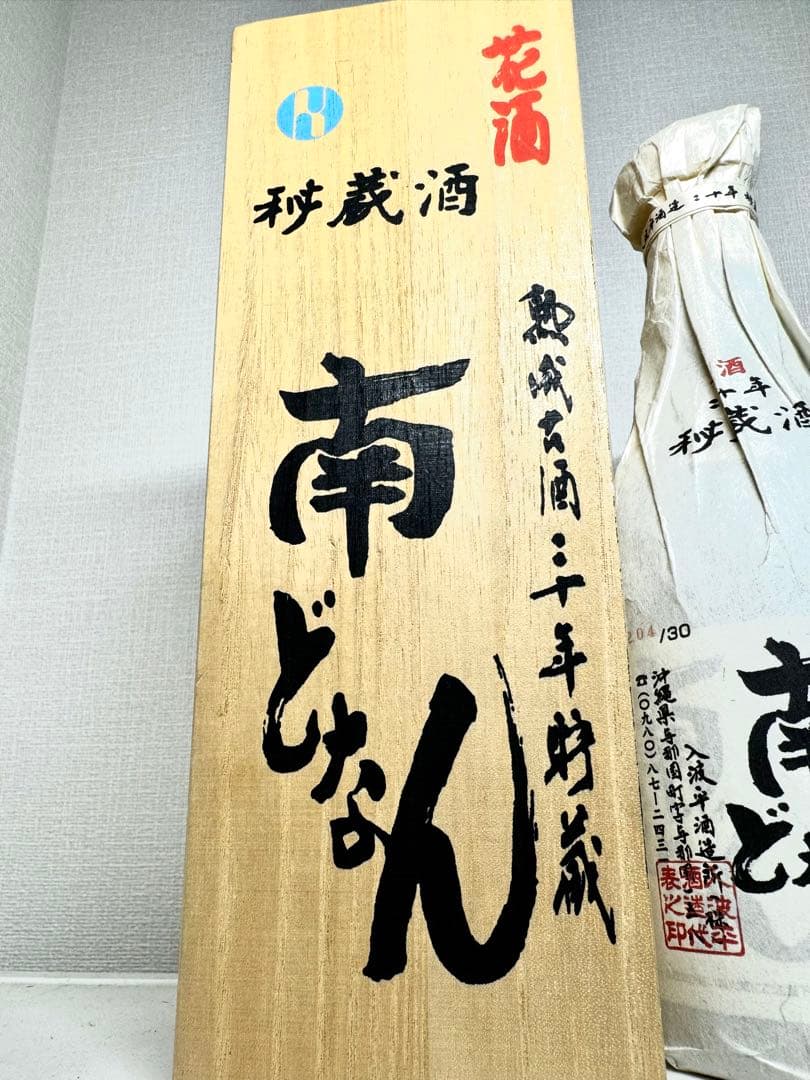 花酒
秘蔵酒
熟成古酒三十年貯蔵
南
どなん
平酒造 三十年
酒
三十年
秘蔵酒
204/30
南
ど
入波平酒造
沖縄県与那国町字与那国
☎(〇九八〇)八七ー二四三一